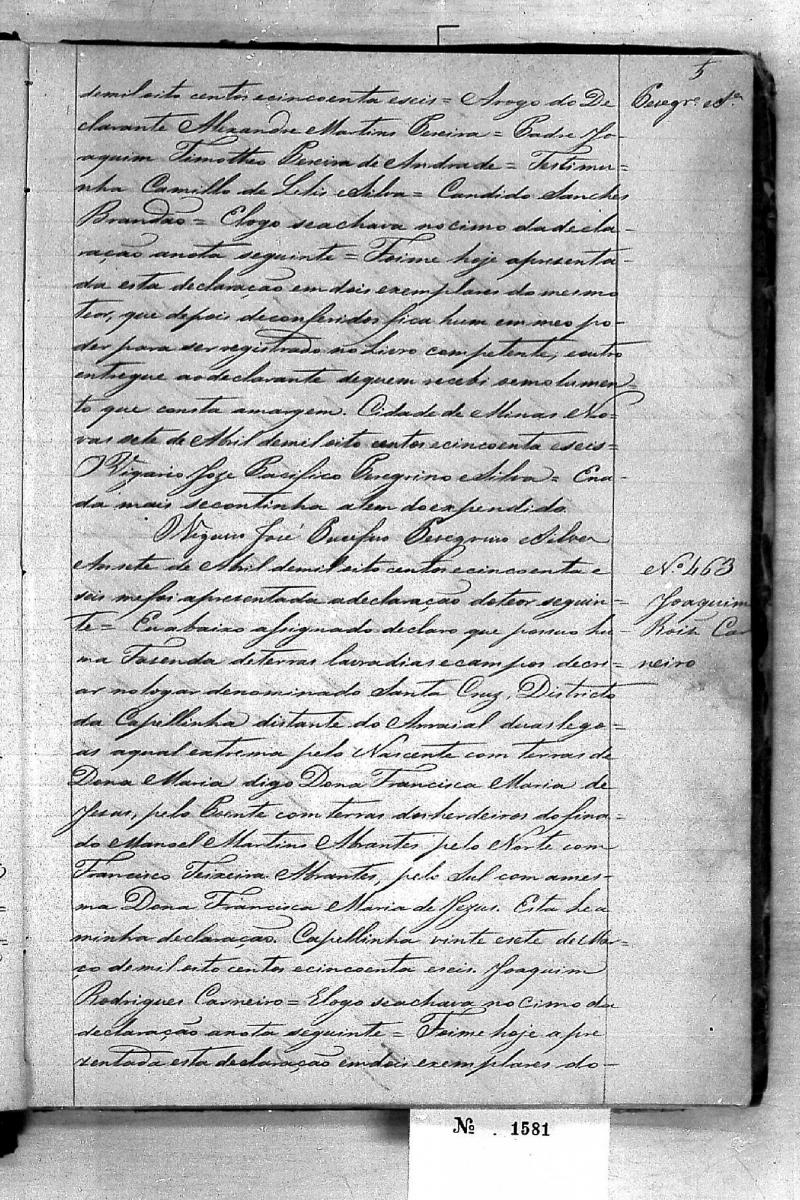 5
demil oito centos ecincoenta eseis = Arogo do De
clarante Alexandre Martins Pereira = Padre Jo-
aquim Timotheo Pereira de Andrade = Testimu=
nha Camillo de Lelis eSilva = Candido Sanches
Brandão = Elogo seachava nocimo dadecla-
ração anota seguinte = Foime hoje apresenta-
da esta declaração em dois exemplares do mesmo
teor, que depois deconferidos fica hum em meo po-
der para ser registrado no Livro competente, eoutro
entregue aodeclarante dequem recebi oemolumen=
to que consta amargem. Cidade de Minas No-
vas sete de Abril demil oito centos ecincoenta eseis=
OVigario Joze Pacifico Peregrino eSilva = Ena-
da mais secontinha alem doexpendido.
OVigario José Pacifico Peregrino eSilva
Aos sete de Abril demil oito centos ecincoenta e
seis mefoi apresentada adeclaração doteor seguin=
te = Eu abaixo assignado declaro que possuo hu-
ma Fasenda deterras lavradias ecampos decri=
ar nolugar denominado Santa Cruz, Districto
da Capellinha distante do Arraial duas lego=
as aqual extrema pelo Nascente com terras de
Dona Maria digo Dona Francisca Maria de
Jesus, pelo Poente com terras dos herdeiros do fina-
do Manoel Martins Abrantes pelo Norte com
Francisco Teixeira Abrantes, pelo Sul com ames-
ma Dona Francisca Maria de Jezus. Esta he a
minha declaração. Capellinha vinte esete de Mar-
ço demil oito centos ecincoenta eseis. Joaquim
Rodrigues Carneiro = Elogo seachava no cimo da
declaração anota seguinte = Foime hoje apre
zentada esta declaração em dois exemplares do-
Peregr.º eS.ª
Nº 463
Joaquim
Roiz Car
neiro
Nº. 1581